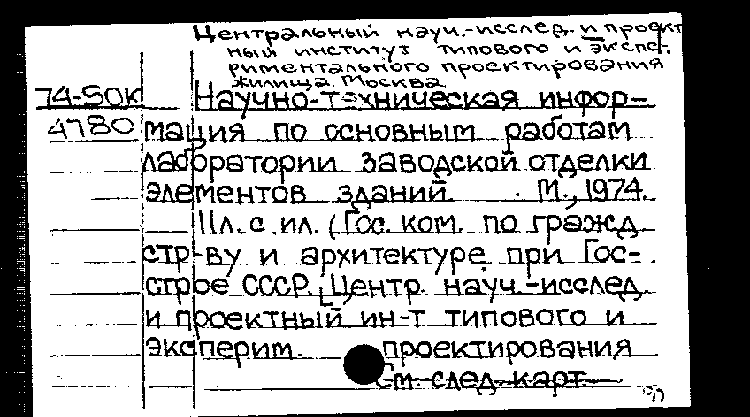 Центральный науч.-исслед. и проект
ный институт типового и экспе-
риментального проектирования
жилища. Москва
74-50К Научно-техническая инфор-
4780 мация по основным работам
лаборатории заводской отделки
элементов зданий. М., 1974.
11л. с ил. (Гос. ком. по гражд.
стр-ву и архитектуре при Гос-
строе СССР. Центр. науч.-исслед.
и проектный ин-т типового и
эксперим. проектирования
См. след. карт.